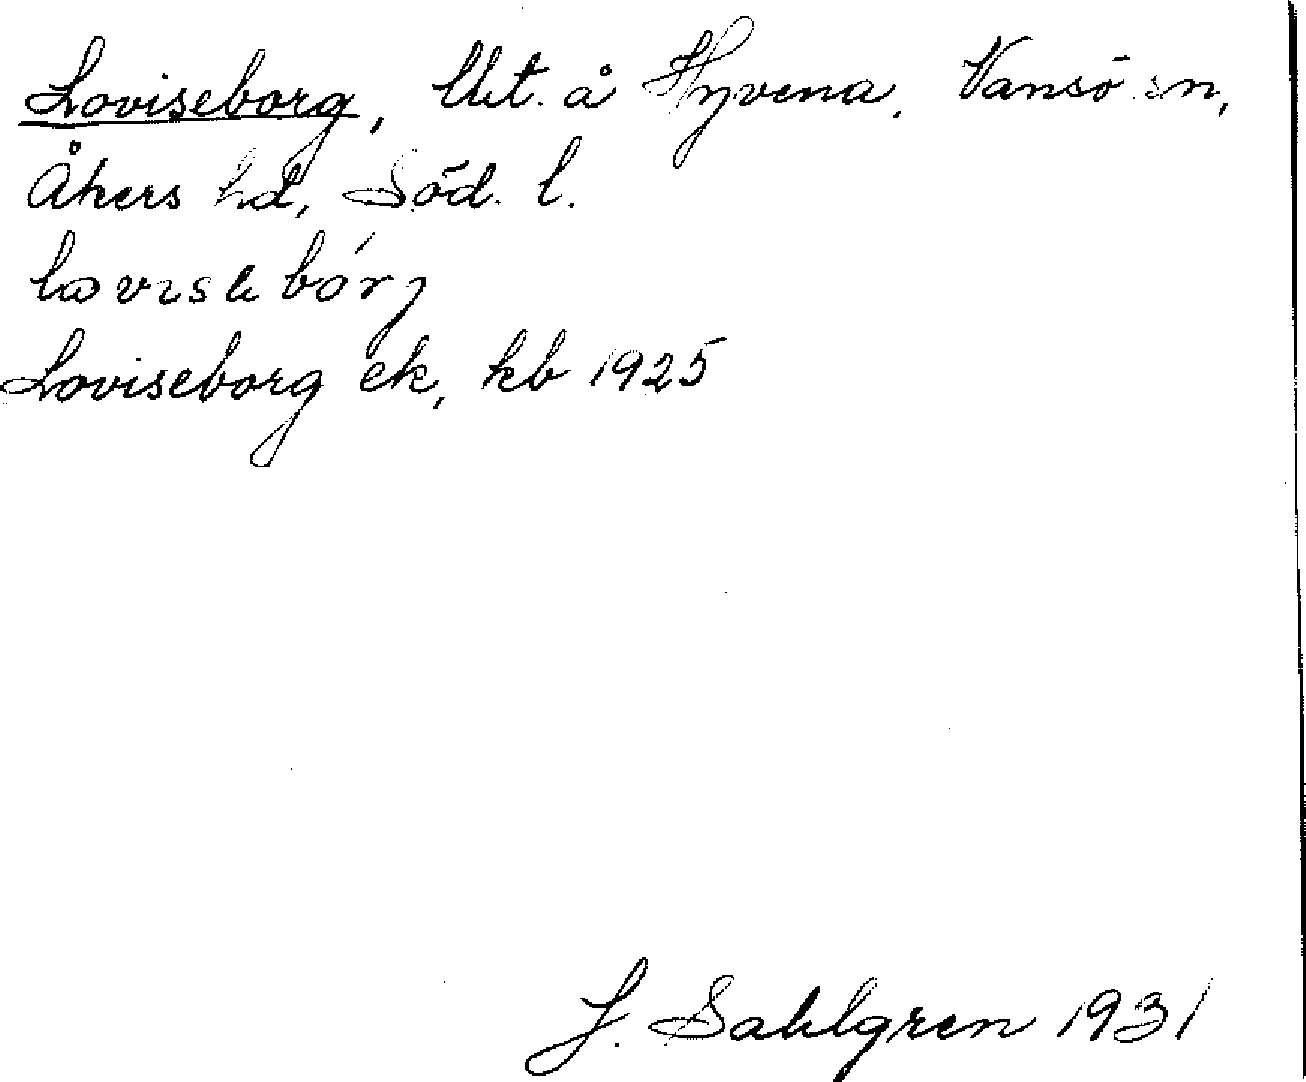 Loviseborg, lht. å Hyvena, Vansö sn,
Åkers hd, Söd. l.
Loviseborg ek, kb 1925
J. Sahlgren 1931